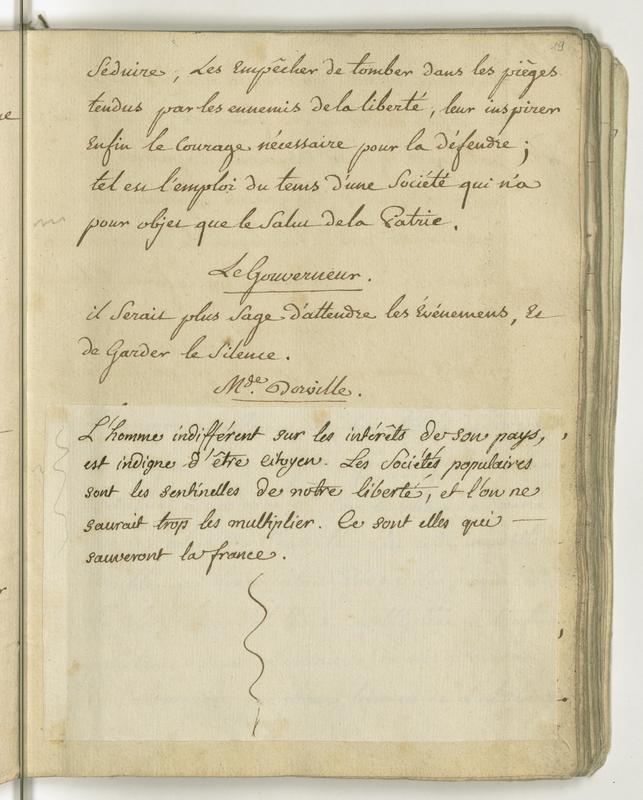 19
séduire, Les Empêcher de tomber dans les pièges
tendus par les ennemis de la liberté, leur inspirer
Enfin le Courage nécessaire pour la défendre;
tel est l'emploi du tems d'une Société qui n'a
pour objet que le Salut de la Patrie.
Le Gouverneur.
il Serait plus Sage d'attendre les Événemens, Et
de Garder le Silence.
Mde. Dorville.
L'homme indifférent sur les intérêts de son pays,
est indigne d'être citoyen. Les Sociétés populaires
sont les sentinelles de notre liberté, et l'on ne
saurait trop les multiplier. Ce sont elles qui —
sauveront la france.